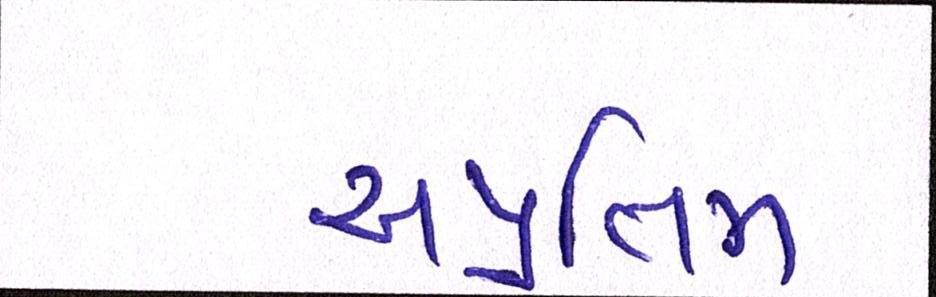 અપ્રતિમ